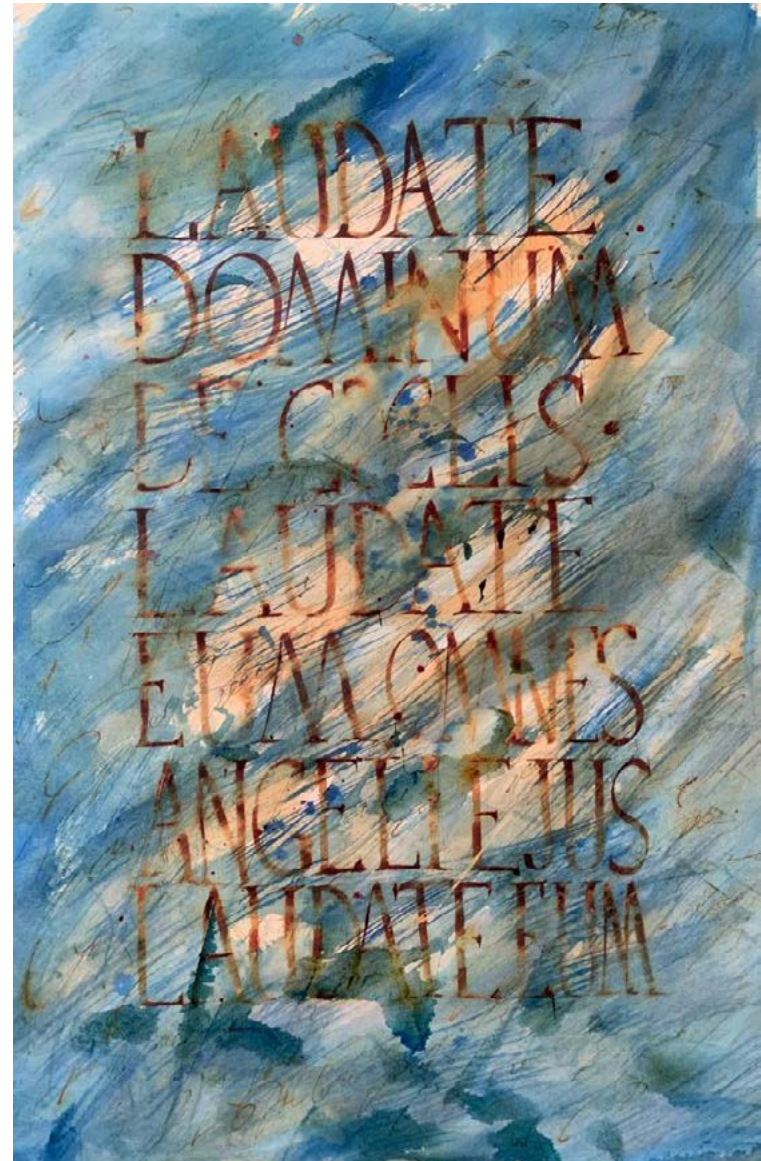 LAUDATE
DOMINUM
DE COELIS
LAUDATE
EUM OMNES
ANGELI EJUS
LAUDATE EUM